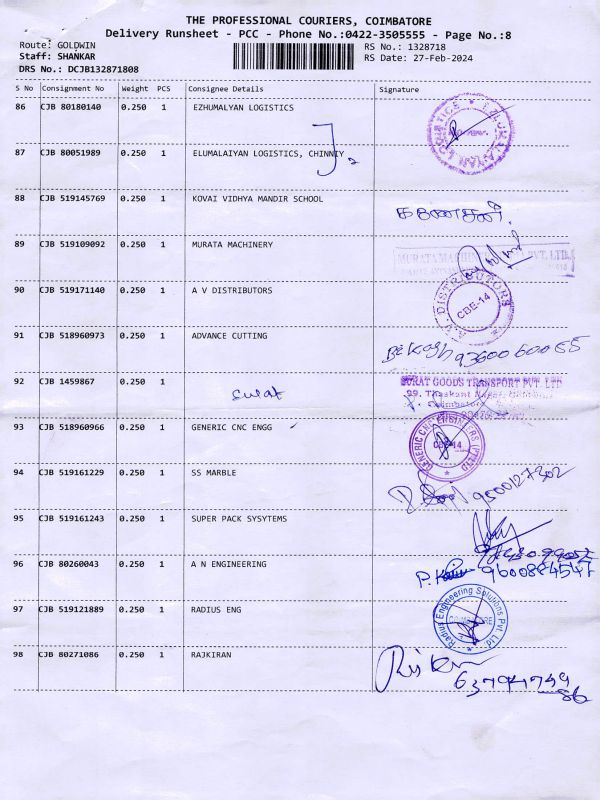 THE PROFESSIONAL COURIERS, COIMBATORE
Delivery Runsheet - PCC - Phone No.:0422-3505555 - Page No.:8
Route: GOLDWIN
RS No.: 1328718
Staff: SHANKAR
RS Date: 27-Feb-2024
DRS No.: DCJB132871808
S No Consignment No Weight PCS Consignee Details Signature
86 CJB 80180140 0.250 1 EZHUMALYAN LOGISTICS
87 CJB 80051989 0.250 1 ELUMALAIYAN LOGISTICS, CHINNIY
2
88 CJB 519145769 0.250 1 KOVAI VIDHYA MANDIR SCHOOL
89 CJB 519109092 0.250 1 MURATA MACHINERY
MURATA MACHINERY PVT. LTD.
90 CJB 519171140 0.250 1 A V DISTRIBUTORS
A.V. DISTRIBUTORS
CBE-14
91 CJB 518960973 0.250 1 ADVANCE CUTTING
9360060065
92 CJB 1459867 0.250 1
Surat
SURAT GOODS TRANSPORT PVT. LTD
29, Thaskant Nagar,
93 CJB 518960966 0.250 1 GENERIC CNC ENGG
GENERIC CNC ENGINEERS
CBE-14
94 CJB 519161229 0.250 1 SS MARBLE
9500127302
95 CJB 519161243 0.250 1 SUPER PACK SYSYTEMS
96 CJB 80260043 0.250 1 A N ENGINEERING
9600884547
97 CJB 519121889 0.250 1 RADIUS ENG
Radius Engineering Solutions Pvt. Ltd.
98 CJB 80271086 0.250 1 RAJKIRAN